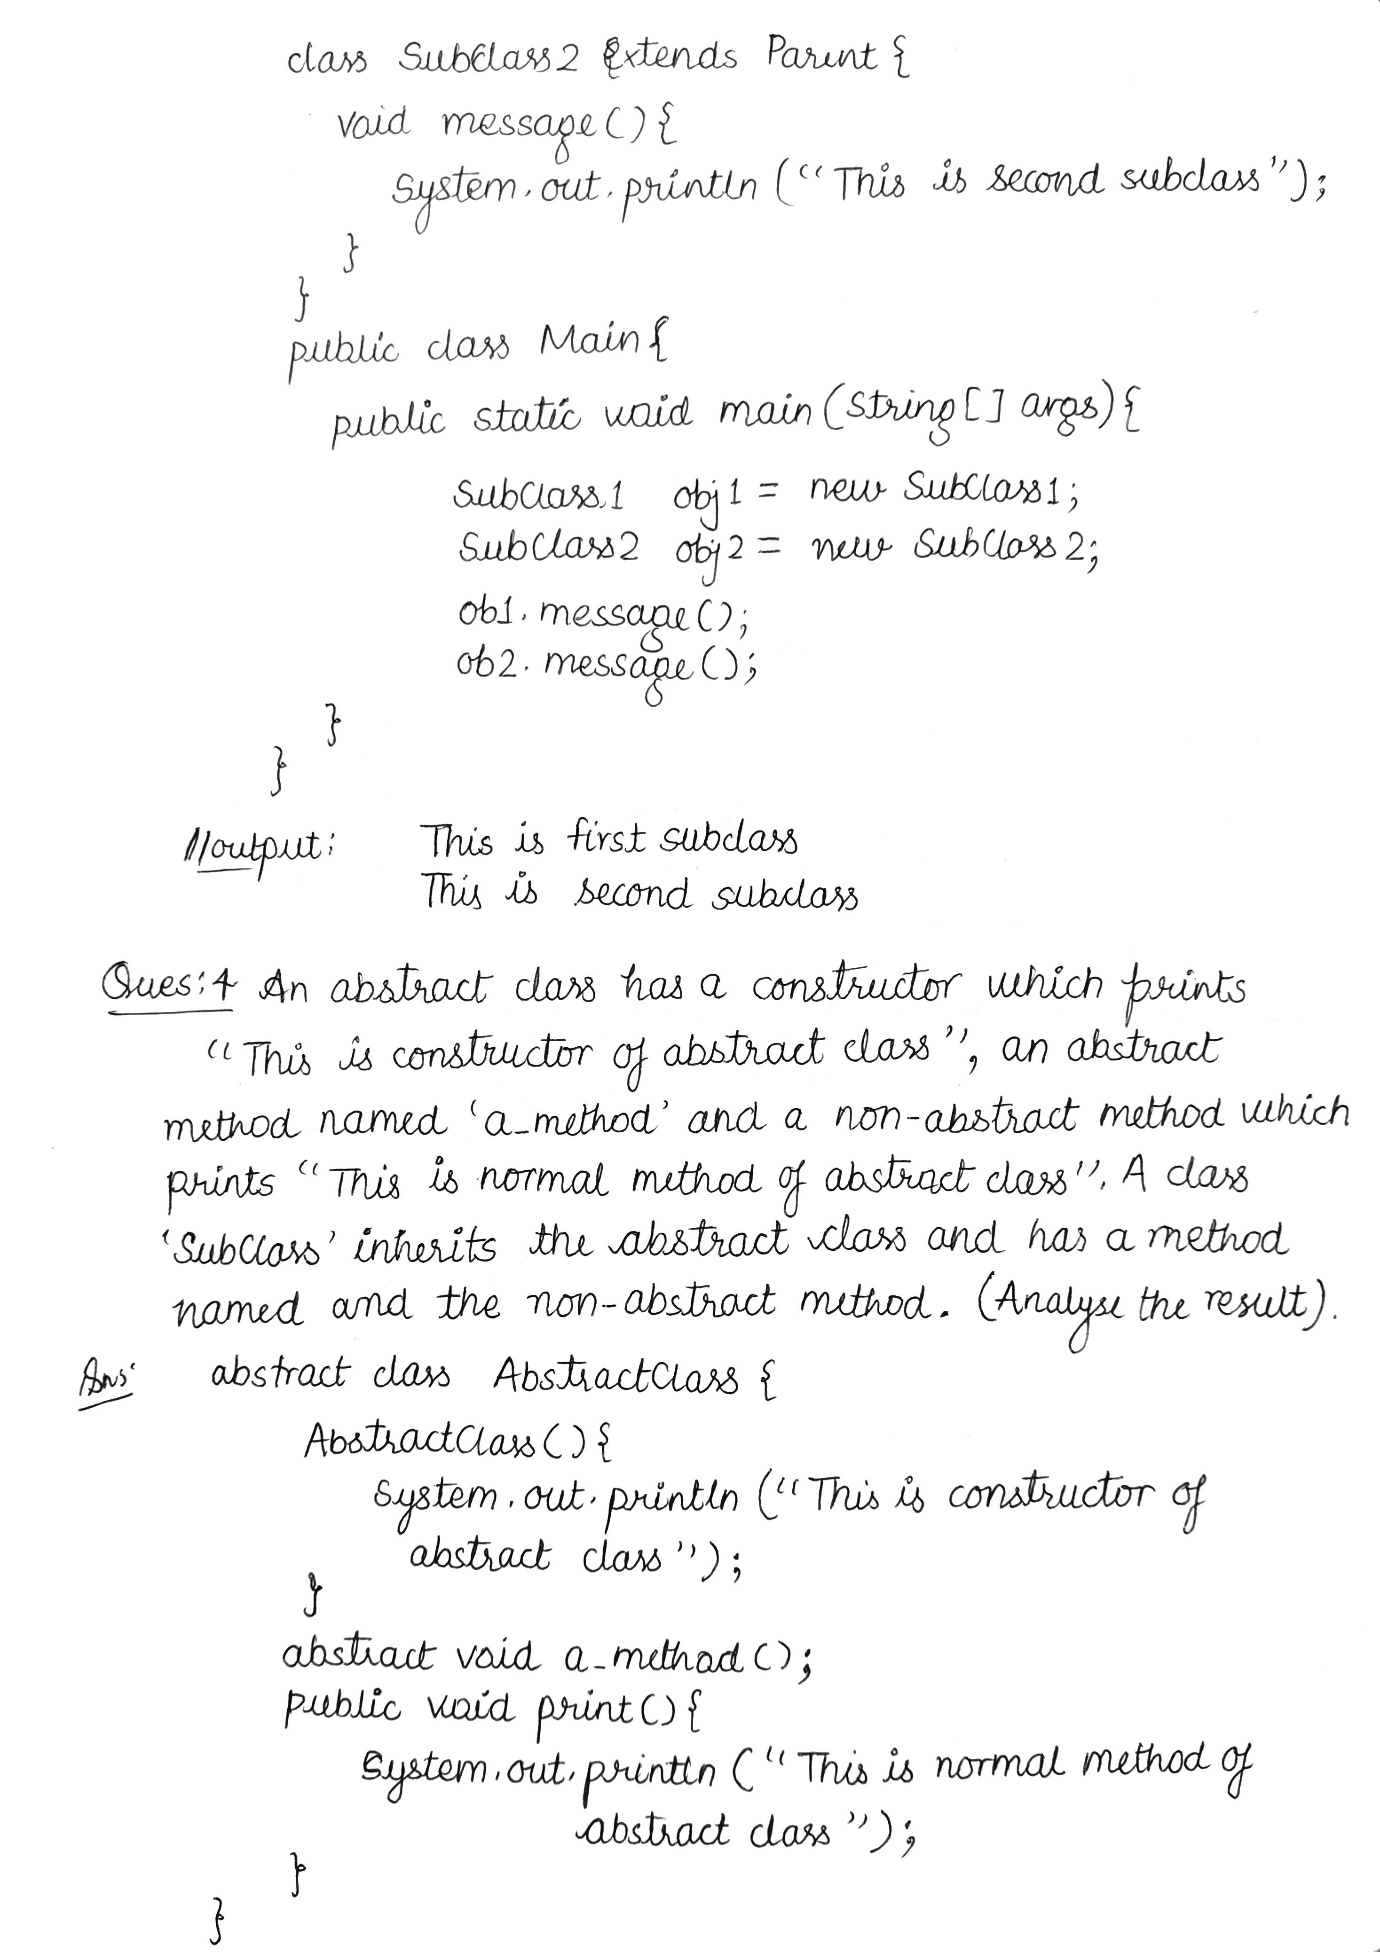 class SubClass2 Extends Parent {
void message(){
System.out.println ("This is second subclass");
}
}
public class Main{
public static void main(String[] args){
SubClass1 obj1 = new SubClass1;
SubClass2 obj2 = new SubClass2;
ob1.message();
ob2.message();
}
}
//output: This is first subclass
This is second subclass
Ques:4 An abstract class has a constructor which prints
"This is constructor of abstract class", an abstract
method named 'a_method' and a non-abstract method which
prints "This is normal method of abstract class". A class
'SubClass' inherits the abstract class and has a method
named and the non-abstract method. (Analyse the result).
Ans: abstract class AbstractClass {
AbstractClass(){
System.out.println ("This is constructor of
abstract class");
}
abstract void a_method();
public void print(){
System.out.println ("This is normal method of
abstract class");
}
}